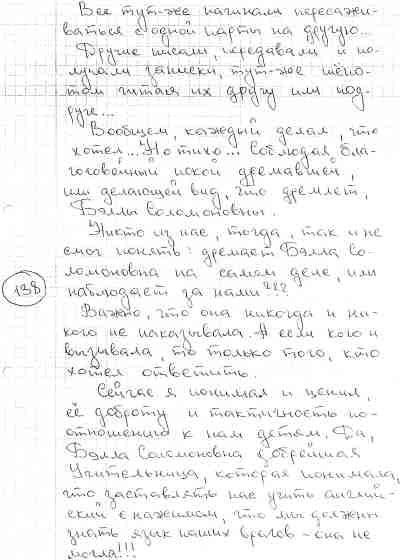 Все тут-же начинали пересажи-
ваться с одной парты на другую...
Другие писали, передавали и по-
лучали записки, тут-же шёпо-
том читая их другу или под-
руге...
Вообщем, каждый делал, что
хотел... Но тихо... Соблюдая бла-
гоговейный покой дремавшей,
или делающей вид, что дремлет,
Бэллы Соломоновны.
Никто из нас, тогда, так и не
смог понять: дремает Бэлла Со-
ломоновна на самом деле, или
наблюдает за нами???
138
Важно, что она никогда и ни-
кого не наказывала. А если кого и
вызывала, то только того, кто
хотел ответить.
Сейчас я понимая и ценил,
её доброту и тактичность по-
отношению к нам детям. Да,
Бэлла Соломоновна добрейшая
Учительница, которая понимала,
что заставлять нас учить англий-
ский с нажимом, что мы должны
знать язык наших врагов - она не
могла!!!